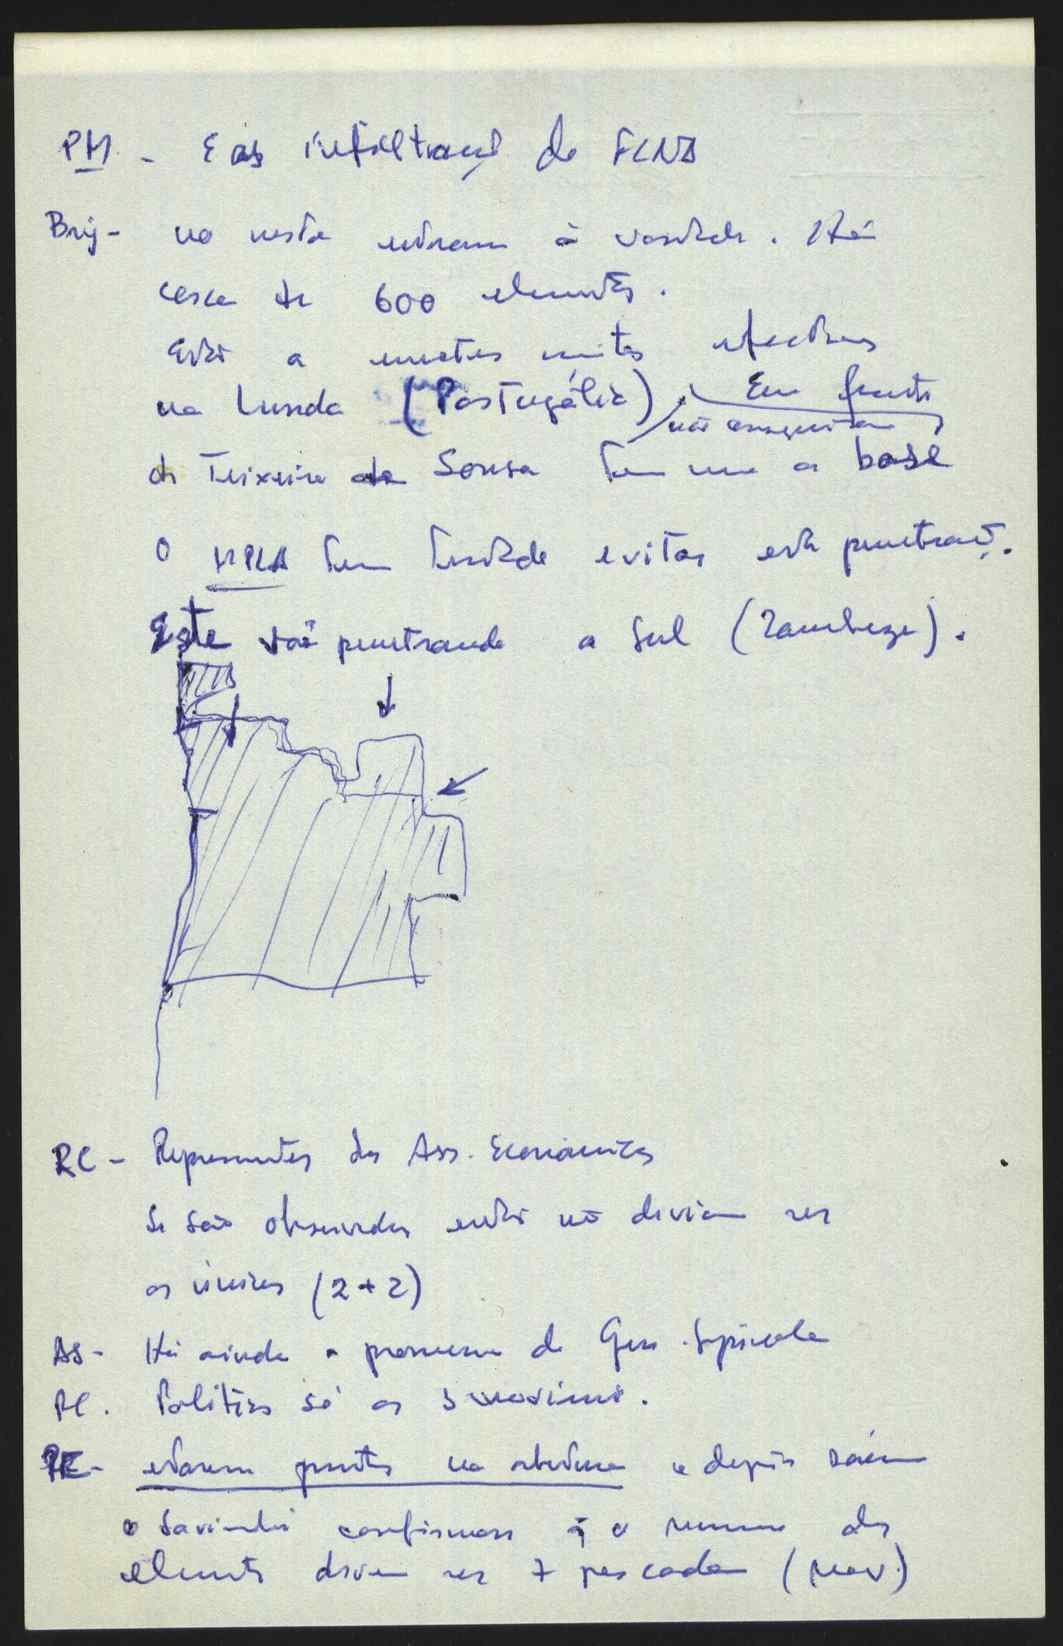 PM - E as infiltraçõ da FLNA
Brig - no norte entram à vontade. Há
cerca de 600 elementos.
Estão a meter muitos efectivos
na Lunda (Portugália). Em frente
não conseguiram
de Teixeira de Sousa tem uma base
O MPLA tem tentado evitar esta penetraç.
Este vão penetrando a Sul (Zambeze).
RC - Representantes das Ass. Económicas
Se são observadores então não deviam ser
os únicos (2+2)
AS - Há ainda a promessa do Gen.
RC. Políticos só os 3 movimt.
estarem presentes na abertura e depois saírem
o Savimbi confirmou q o numero dos
elements devem ser 7 por cada (mov.)